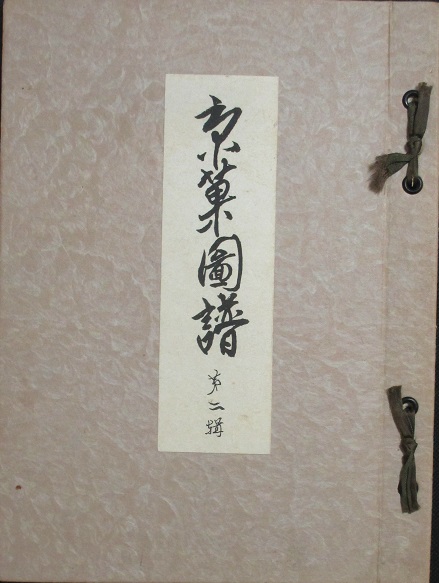 京菓圖譜
第二輯